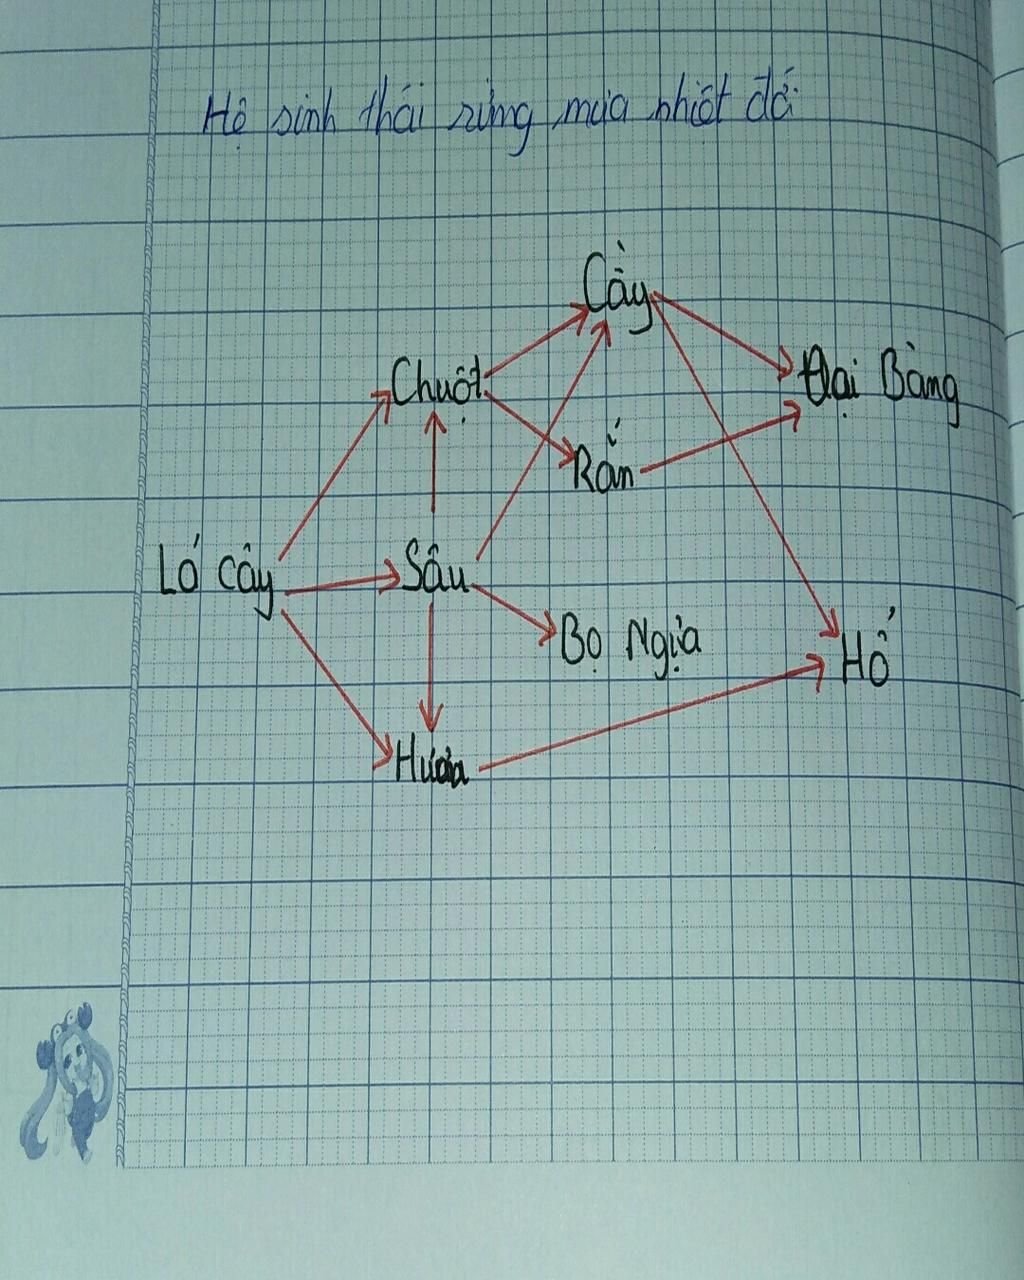 Hệ sinh thái rừng mưa nhiệt đới
Cầy
Chuột
Đại Bàng
Rắn
Lá cây
Sâu
Bọ Ngựa
Hổ
Hươu